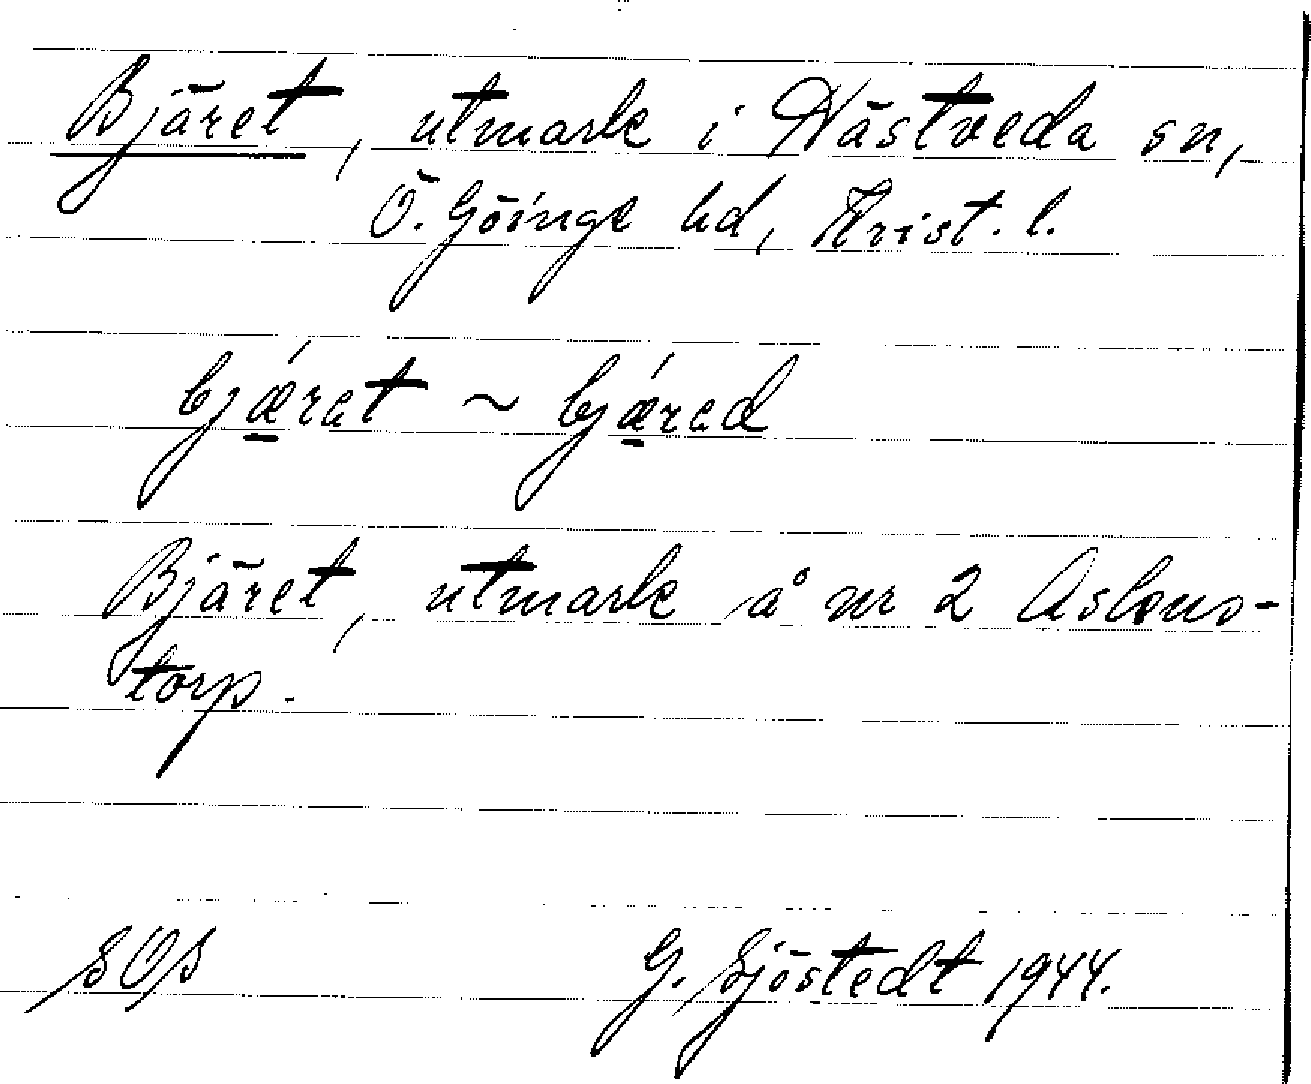 Bjäret, utmark i Västveda sn,
Ö. Göinge hd, Krist. l.
bjǽ̱rat ~ bjǽ̱rad
Bjäret, utmark å nr 2
torp.
SOS
G. Sjöstedt 1944.